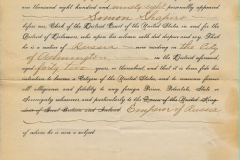 one thousand eight hundred and ninety eight personally appeared
Simon Shapiro
before me, Clerk of the District Court of the United States in and for the
District of Delaware, who upon his solemn oath did depose and say: That
he is a native of Russia now residing in the City
of Wilmington in the District aforesaid,
aged forty two years, or thereabout, and that it is bona fide his
intention to become a Citizen of the United States, and to renounce forever
all Allegiance and fidelity to any foreign Prince, Potentate, State or
Sovereignty whatever, and particularly to the Queen of the United King-
dom of Great Britain and Ireland Emperor of Russia
of whom he now is a subject.